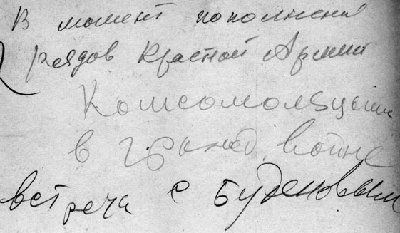 В момент пополнения
рядов Красной Армии
Комсомольцы
в гражд. войне
встреча с Буденовым